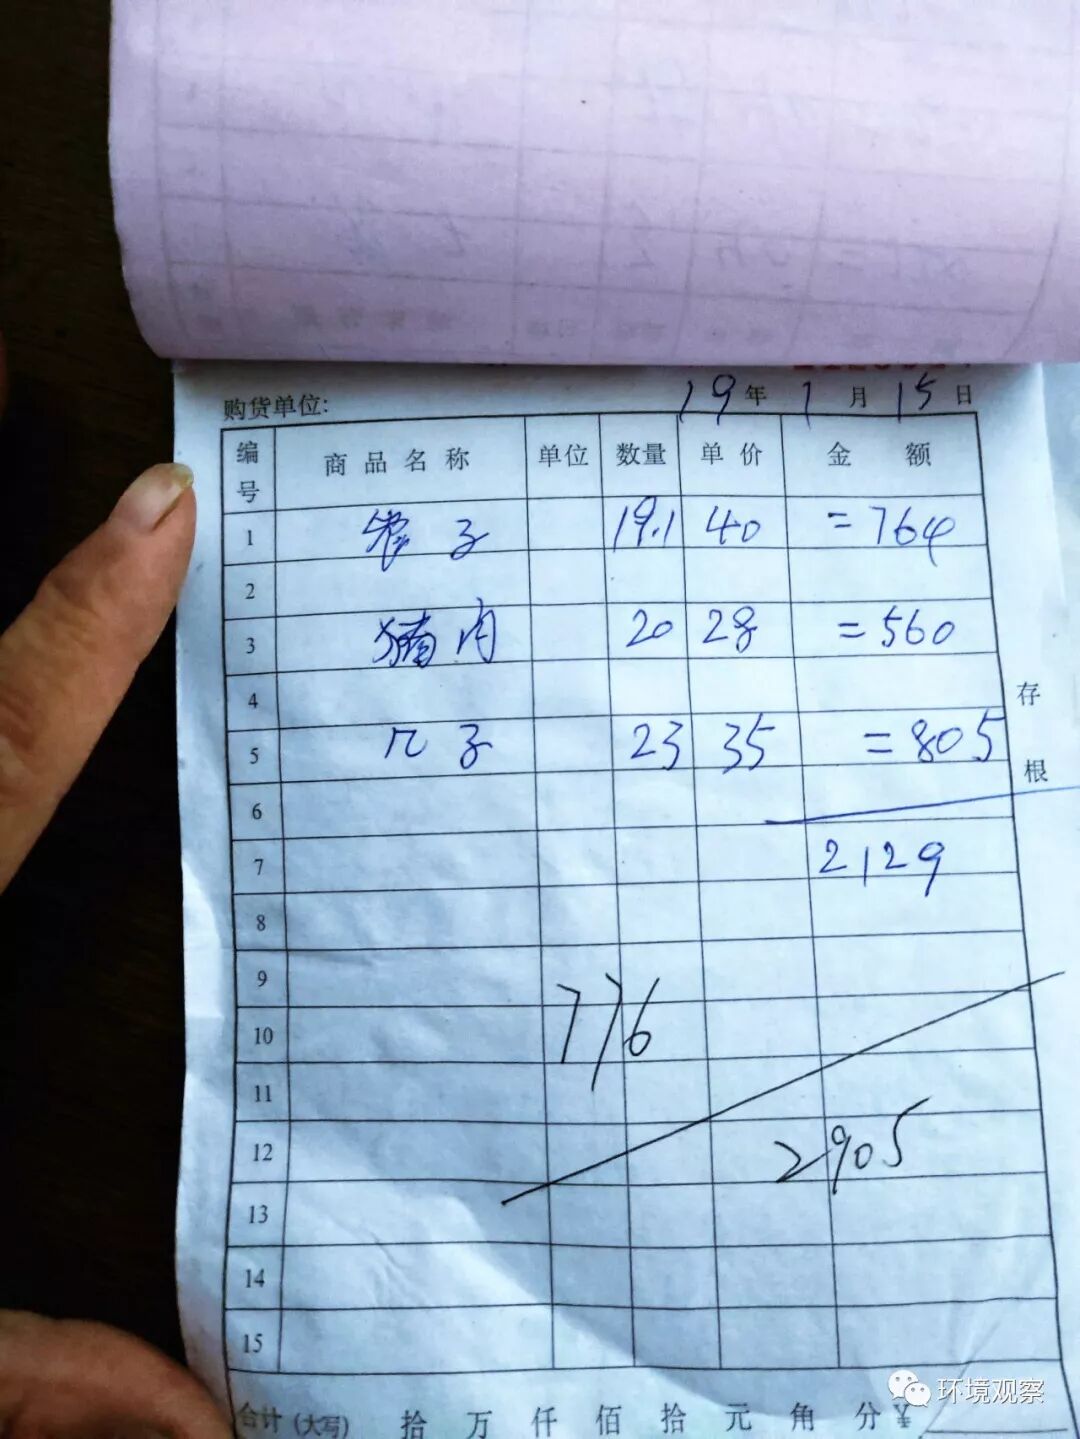 购货单位: 19年 1月 15日
编号 商品名称 单位 数量 单价 金额
1 子 19.1 40 =764
2
3 猪肉 20 28 =560
4
5 几子 23 35 =805
6
7 2129
8
9
10 776
11
12 2905
13
14
15
存根
合计(大写) 拾 万 仟 佰 拾 元 角 分 ¥
环境观察